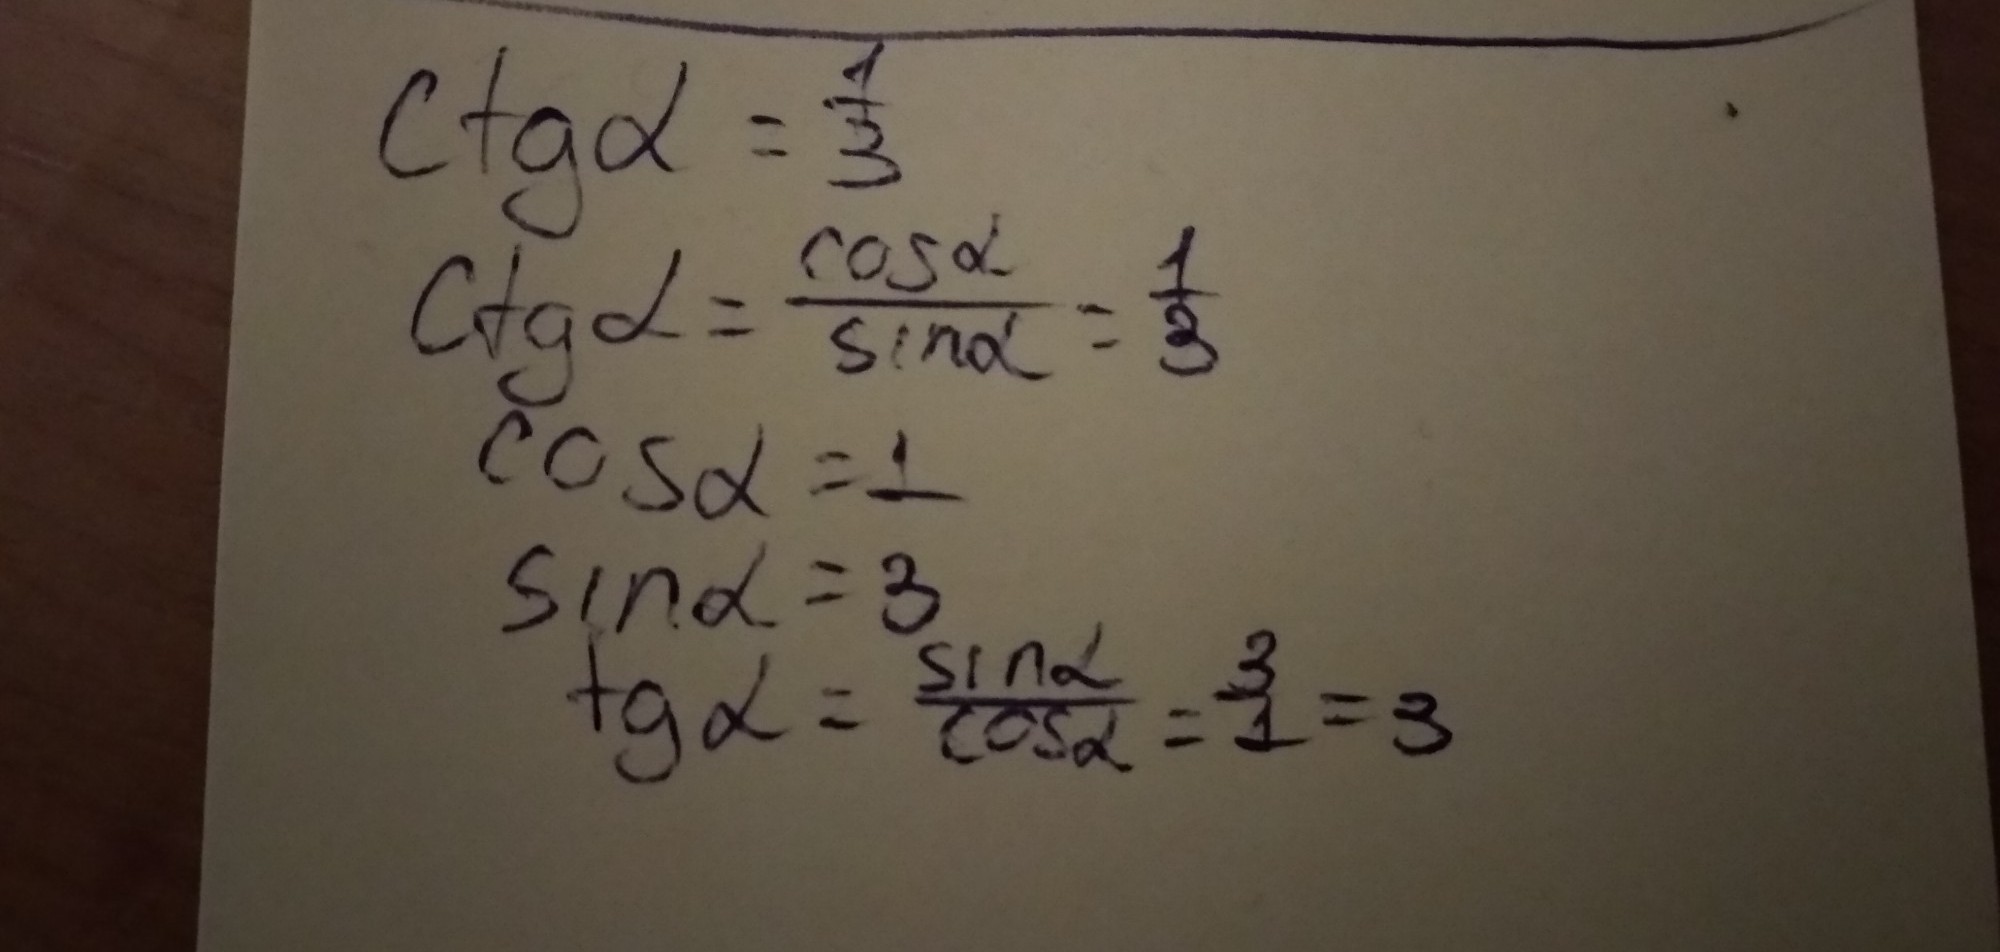 ctgα = 1/3
ctgα = cosα/sinα = 1/3
cosα = 1
sinα = 3
tgα = sinα/cosα = 3/1 = 3